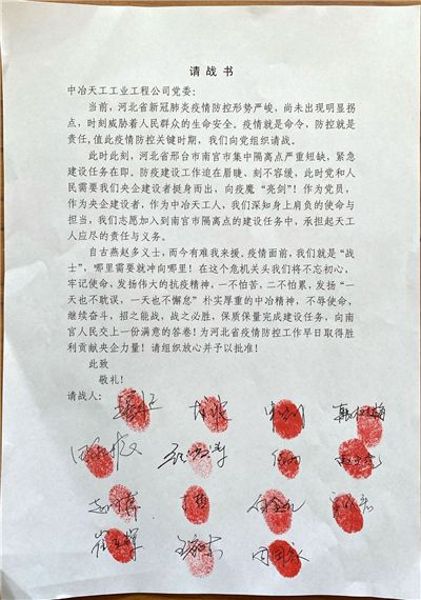 请战书
中冶天工工业工程公司党委：
当前，河北省新冠肺炎疫情防控形势严峻，尚未出现明显拐
点，时刻威胁着人民群众的生命安全。疫情就是命令，防控就是
责任，值此疫情防控关键时期，我们向党组织请战。
此时此刻，河北省邢台市南宫市集中隔离点严重短缺，紧急
建设任务在即。防疫建设工作迫在眉睫、刻不容缓，此时党和人
民需要我们央企建设者挺身而出，向疫魔“亮剑”！作为党员，
作为央企建设者，作为中冶天工人，我们深知身上肩负的使命与
担当，我们志愿加入到南宫市隔离点的建设任务中，承担起天工
人应尽的责任与义务。
自古燕赵多义士，而今有难我来援。疫情面前，我们就是“战
士”，哪里需要就冲向哪里！在这个危机关头我们将不忘初心，
牢记使命，发扬伟大的抗疫精神，一不怕苦，二不怕累，发扬“一
天也不耽误，一天也不懈怠”朴实厚重的中冶精神，不辱使命，
继续奋斗，招之能战，战之必胜，保质保量完成建设任务，向南
宫人民交上一份满意的答卷！为河北省疫情防控工作早日取得胜
利贡献央企力量！请组织放心并予以批准！
此致
敬礼！
请战人：